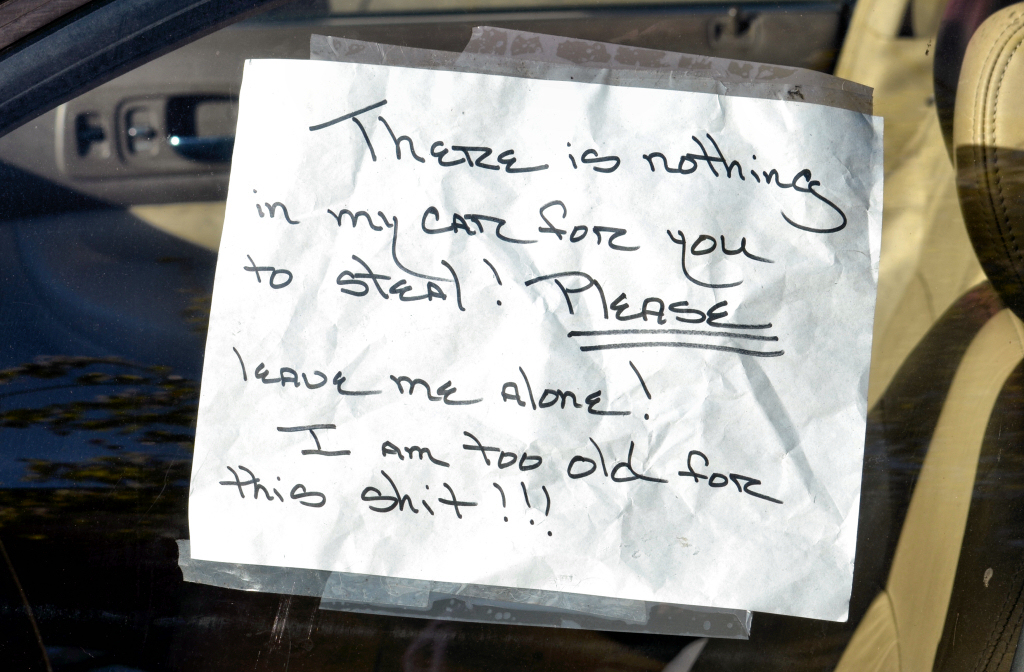 There is nothing
in my car for you
to steal! Please
leave me alone!
I am too old for
this shit!!!